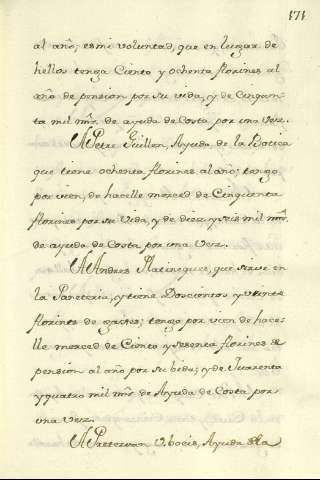 171
al año; es mi voluntad, que en lugar de
hellos tenga Ciento y ochenta florines al
año de pension por su vida, y de Cinquen-
ta mil mrs. de ayuda de Costa por una vez.
A Petre Guillen, Ayuda de la Botica
que tiene ochenta florines al año; tengo
por vien, de hacelle merced de Cinquenta
florines por su Vida, y de diez y seis mil mrs.
de ayuda de Costa por una vez.
A Andres, que sirve en
la Paneteria, y tiene Doscientos y veinte
florines de gages; tengo por vien de hace-
lle merced de Ciento y sesenta florines de
pension al año por su bida; y de Quarenta
y quatro mil mrs de Ayuda de Costa por
una vez.
A, Ayuda de la